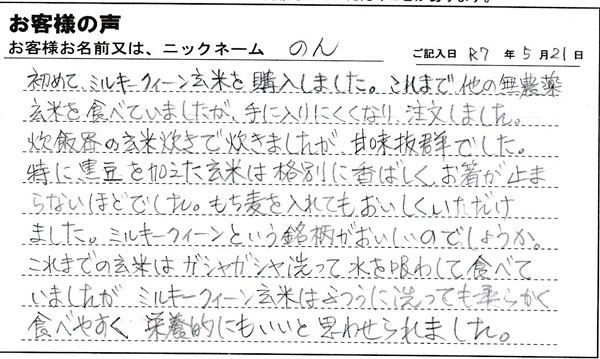 お客様の声
お客様お名前又は、ニックネーム のん ご記入日 R7 年 5 月 21 日
初めて、ミルキークィーン玄米を購入しました。これまで他の無農薬
玄米を食べていましたが、手に入りにくくなり、注文しました。
炊飯器の玄米炊きで炊きましたが、甘味抜群でした。
特に黒豆を加えた玄米は格別に香ばしく、お箸が止ま
らないほどでした。もち麦を入れてもおいしくいただけ
ました。ミルキークィーンという銘柄がおいしいのでしょうか。
これまでの玄米はガシャガシャ洗って水を吸わして食べて
いましたが ミルキークィーン玄米はふつうに洗っても柔らかく
食べやすく、栄養的にもいいと思わせられました。